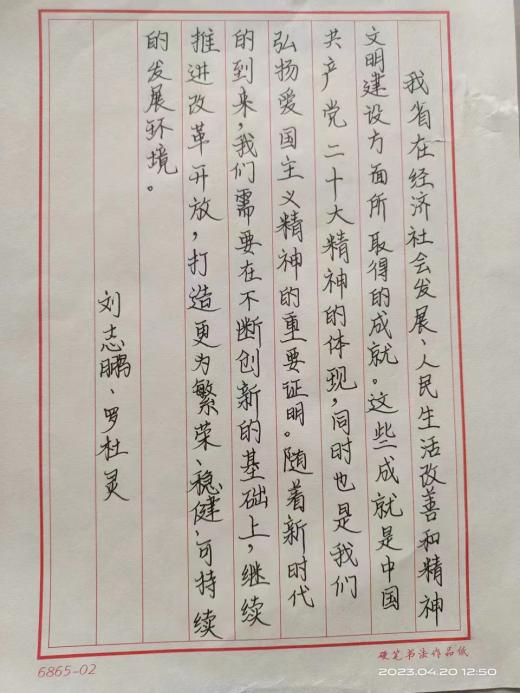 我省在经济社会发展、人民生活改善和精神
文明建设方面所取得的成就。这些成就是中国
共产党二十大精神的体现，同时也是我们
弘扬爱国主义精神的重要证明。随着新时代
的到来，我们需要在不断创新的基础上，继续
推进改革开放，打造更为繁荣、稳健、可持续
的发展环境。
刘志鹏、罗杜灵
6865-02
硬笔书法作品纸
2023.04.20 12:50